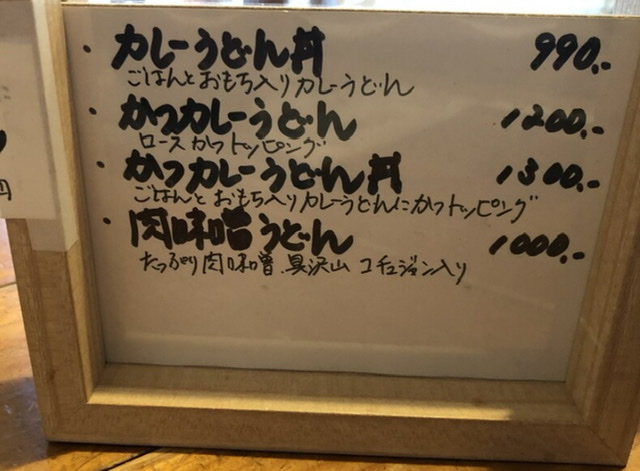 ・カレーうどん丼 990.-
ごはんとおもち入りカレーうどん
・かつカレーうどん 1200.-
ロースかつトッピング
・かつカレーうどん丼 1300.-
ごはんとおもち入りカレーうどんにかつトッピング
・肉味噌うどん 1000.-
たっぷり肉味噌、具沢山 コチュジャン入り
円